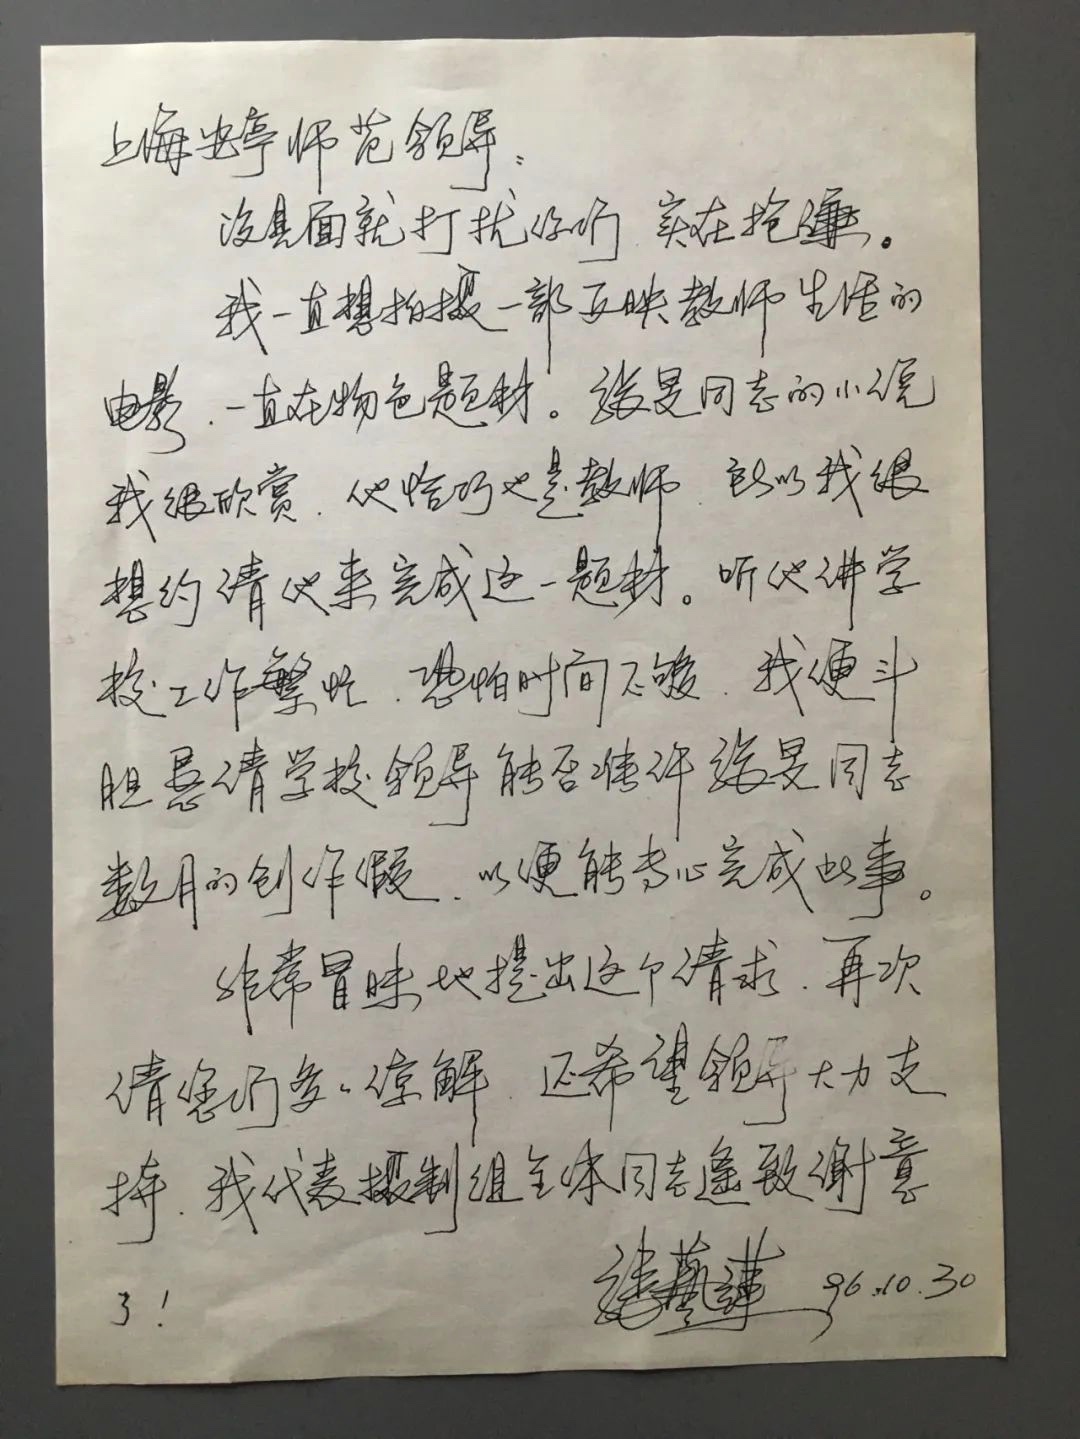 上海安亭师范领导：
没见面就打扰你们，实在抱歉。
我一直想拍摄一部反映教师生活的
电影，一直在物色题材。张旻同志的小说
我很欣赏，他恰巧也是教师，所以我很
想约请他来完成这一题材。听他讲学
校工作繁忙，恐怕时间不够，我便斗
胆恳请学校领导能否准许张旻同志
数月的创作假，以便能专心完成此事。
非常冒昧地提出这个请求，再次
请您们多多谅解，还希望领导大力支
持，我代表摄制组全体同志遥致谢意
了！
张艺谋 96.10.30